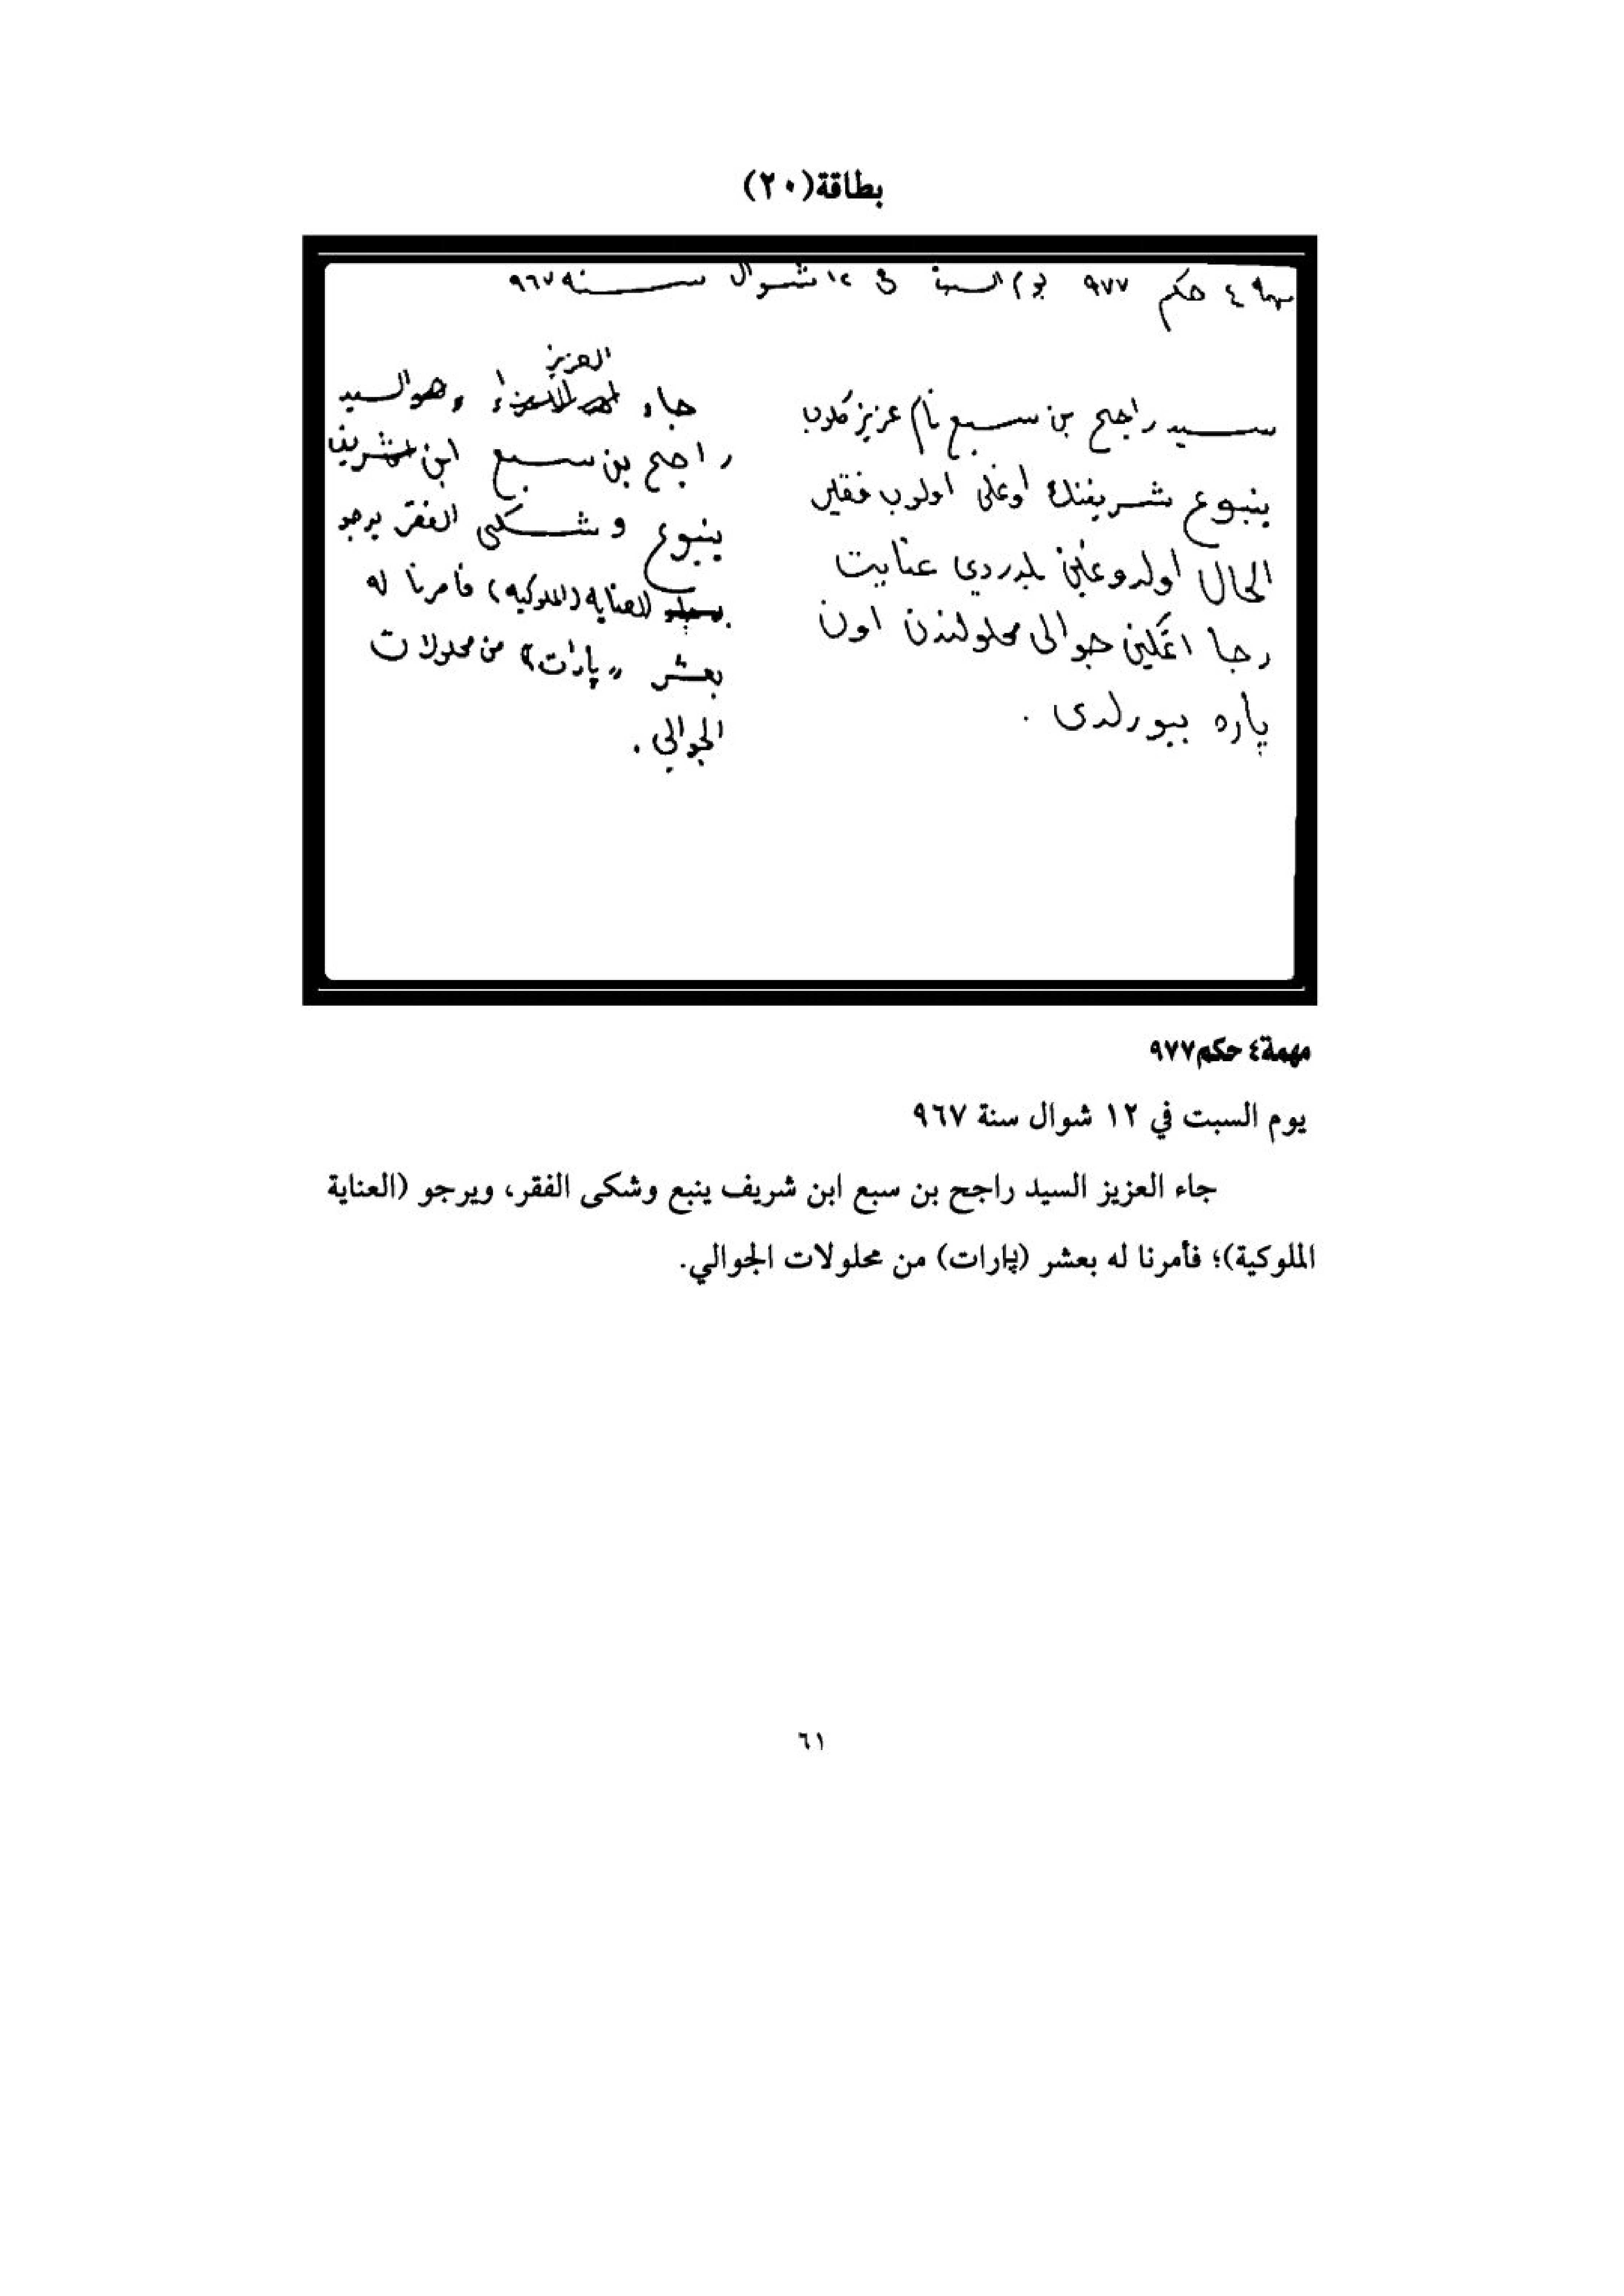 بطاقة(٢٠)
مهمة ٤ حكم ٩٧٧ يوم السبت في ١٢ شوال سنه ٩٦٧
سيد راجح بن سبع نام عزيز كلوب
ينبوع شريفنك اوغلى اولوب فقير
الحال اولدوغين بلدردي عنايت
رجا اتمكين جوالى محلولندن اون
پاره بيورلدى .
العزيز
جاء وهو السيد
راجح بن سبع ابن شريف
ينبوع وشكى الفقر يرجو
العنايه (الملوكيه) فامرنا له
بعشر "پارات" من محلولات
الجوالي .
مهمة٤ حكم٩٧٧
يوم السبت في ١٢ شوال سنة ٩٦٧
جاء العزيز السيد راجح بن سبع ابن شريف ينبع وشكى الفقر، ويرجو (العناية
الملوكية)؛ فأمرنا له بعشر (پارات) من محلولات الجوالي.
٦١